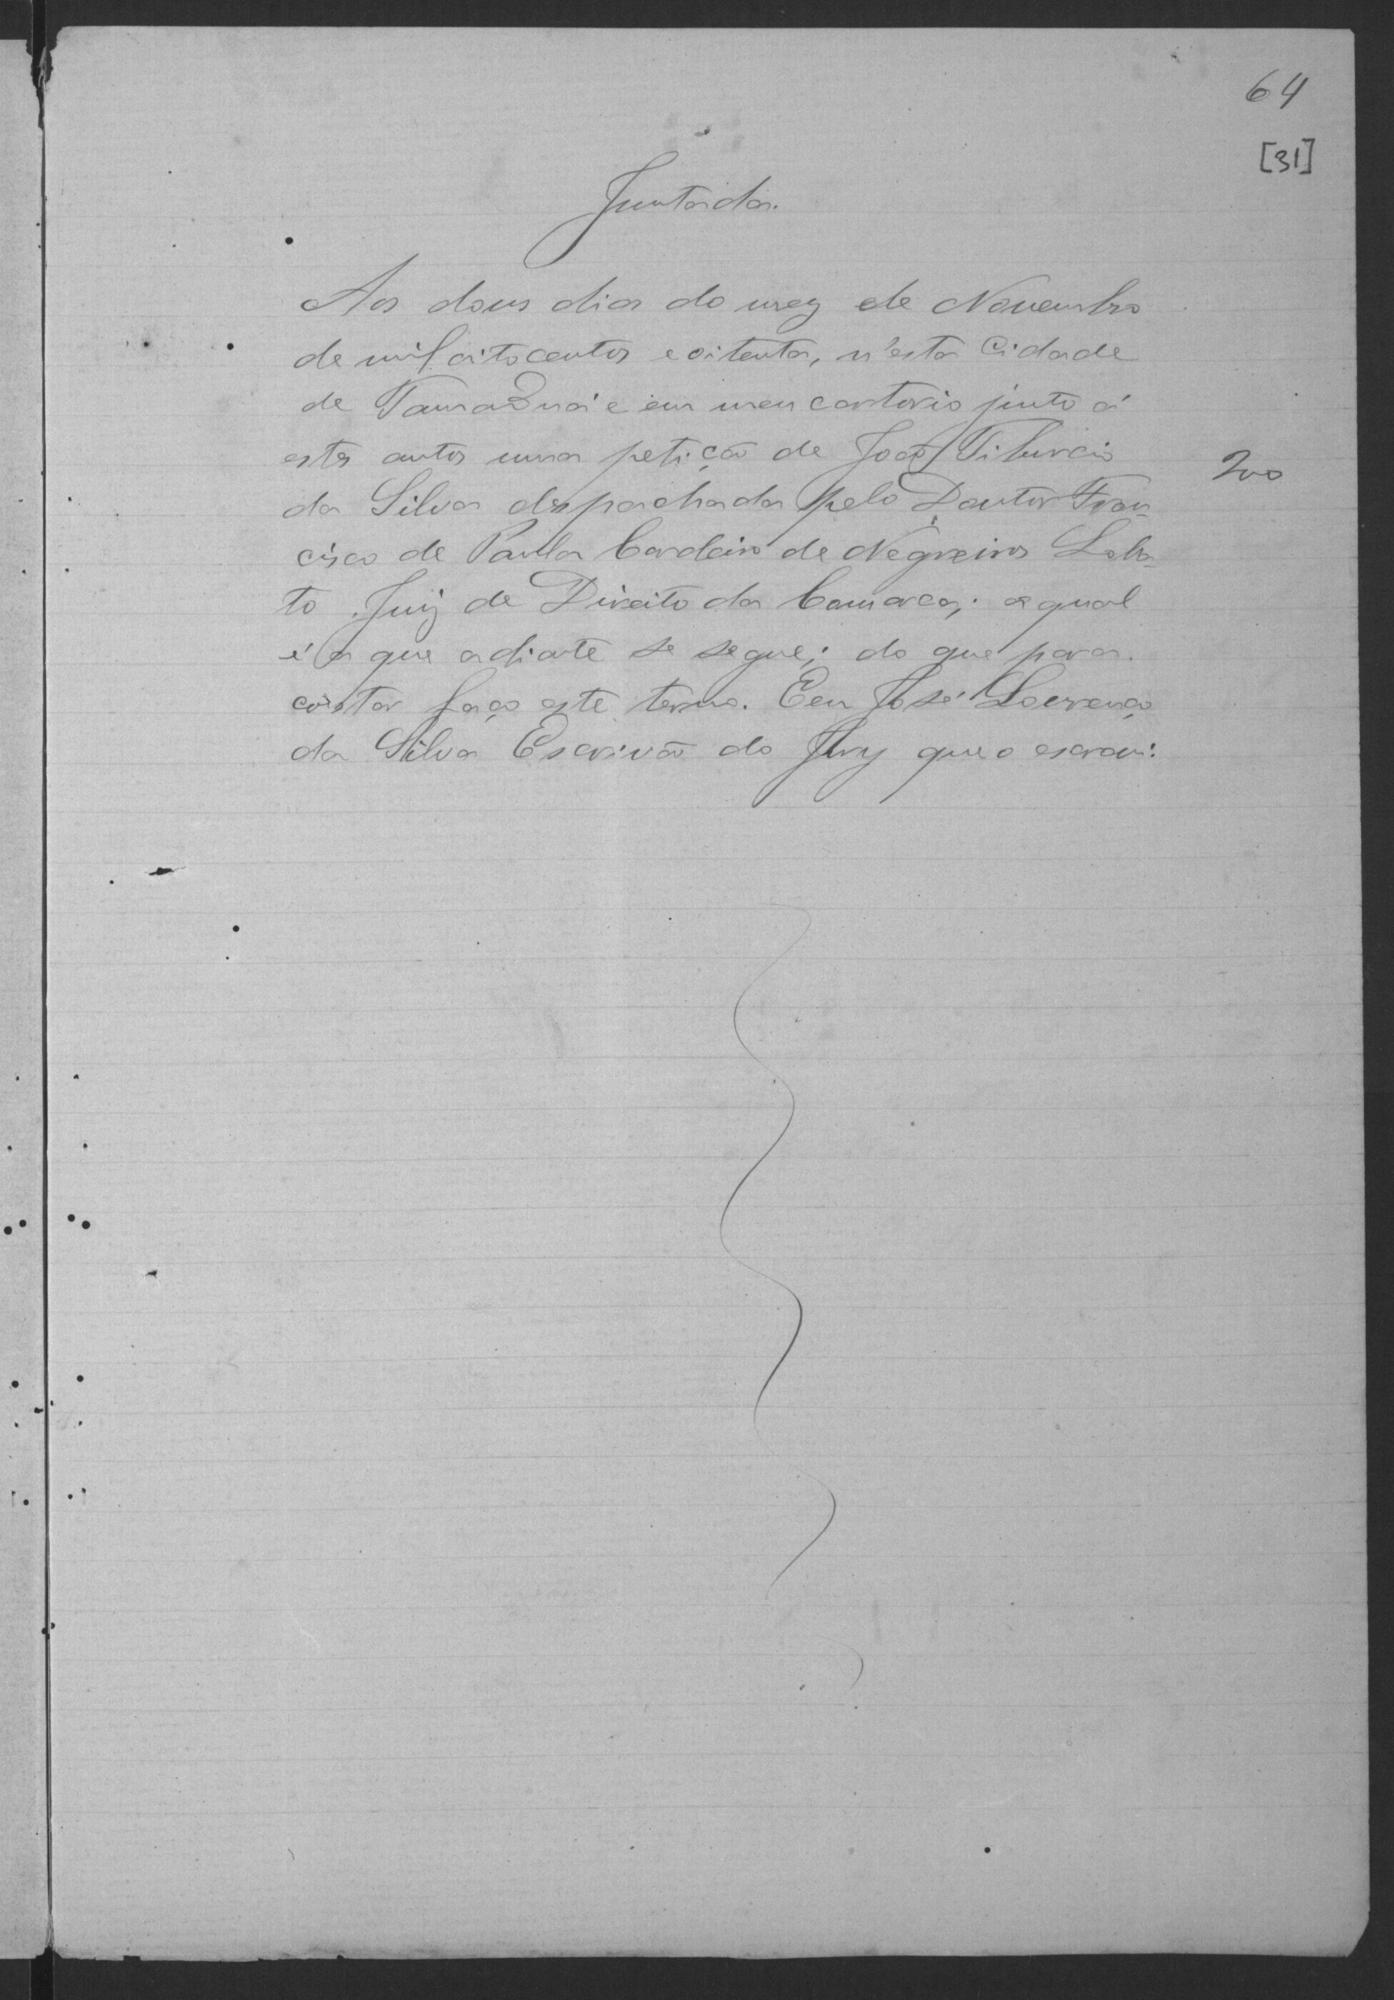 64
[31]
Juntada.
Aos dous dias do mez de Novembro
de mil oitocentos e oitenta, n'esta Cidade
de e em meu cartorio junto á
estes autos uma petição de João Tiburcio
200
da Silva despachada pelo Doutor Fran-
cisco de Paula Cordeiro de Negreiros Loba-
to Juiz de Direito da Comarca; a qual
é a que adiante se segue; do que para
costar faço este termo. Eeu José Lourenço
da Silva Escrivão do Jury que o escrevi: